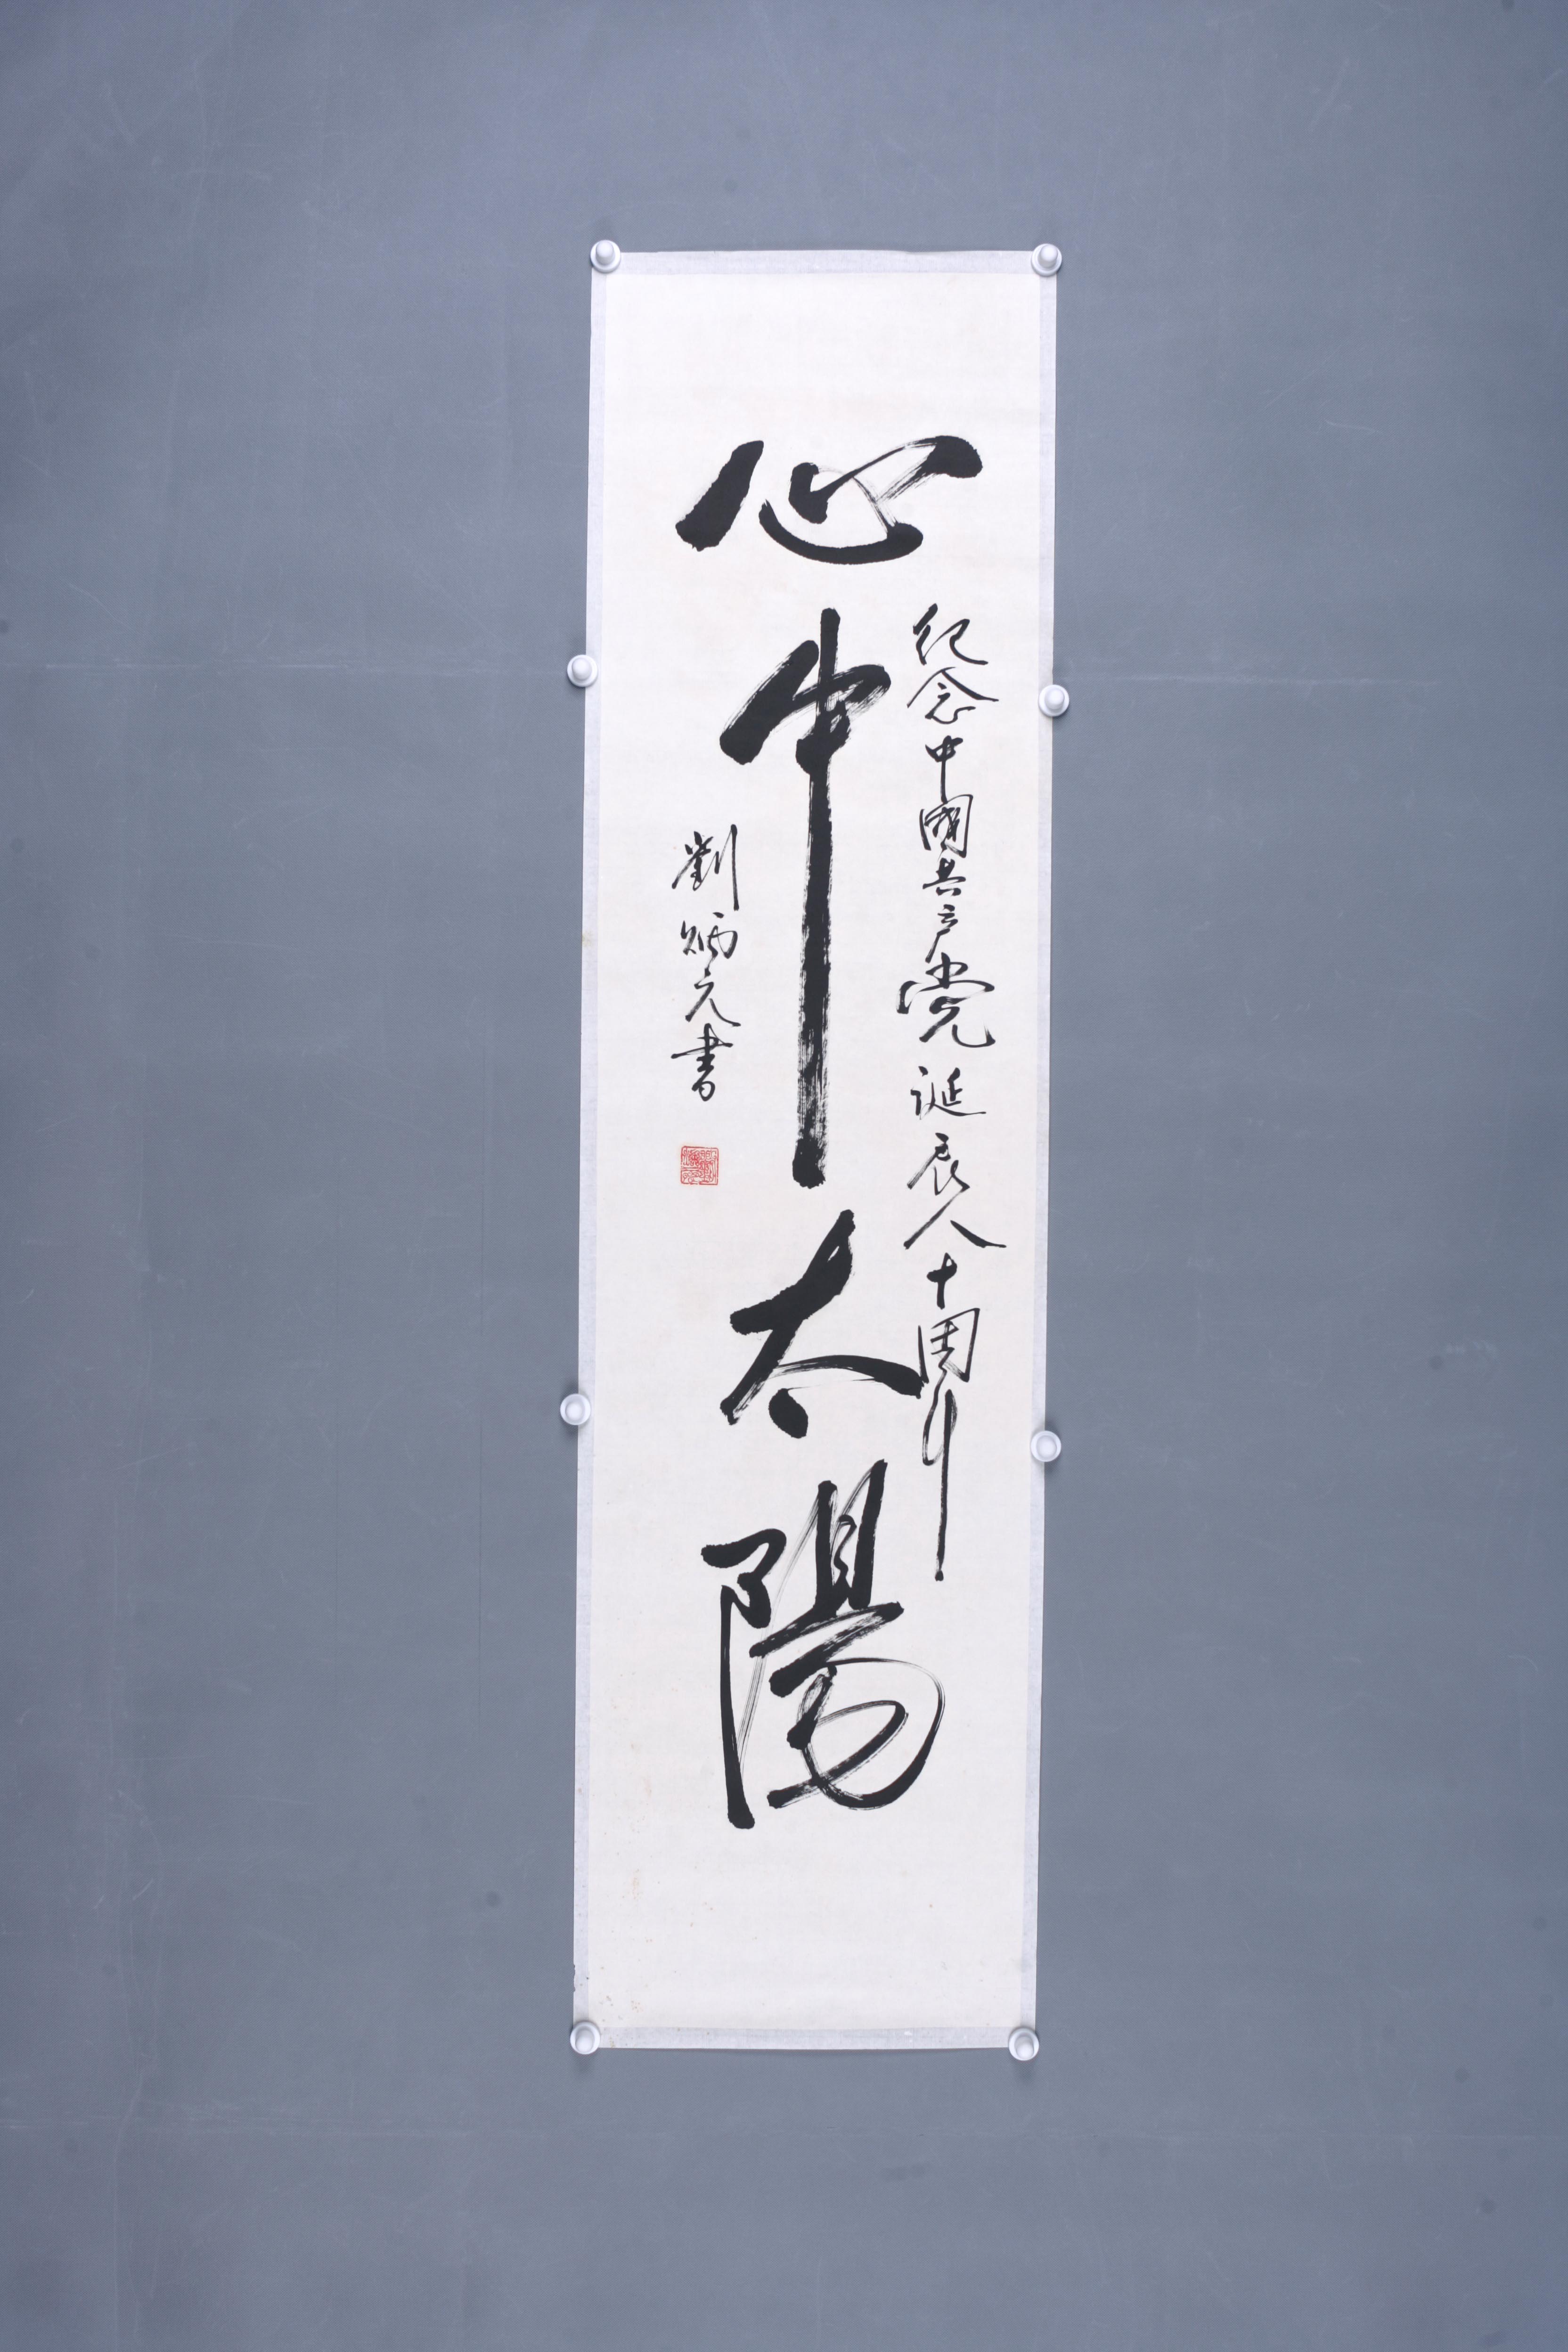 纪念中國共产党诞辰八十周年
心中太陽
劉炳元書